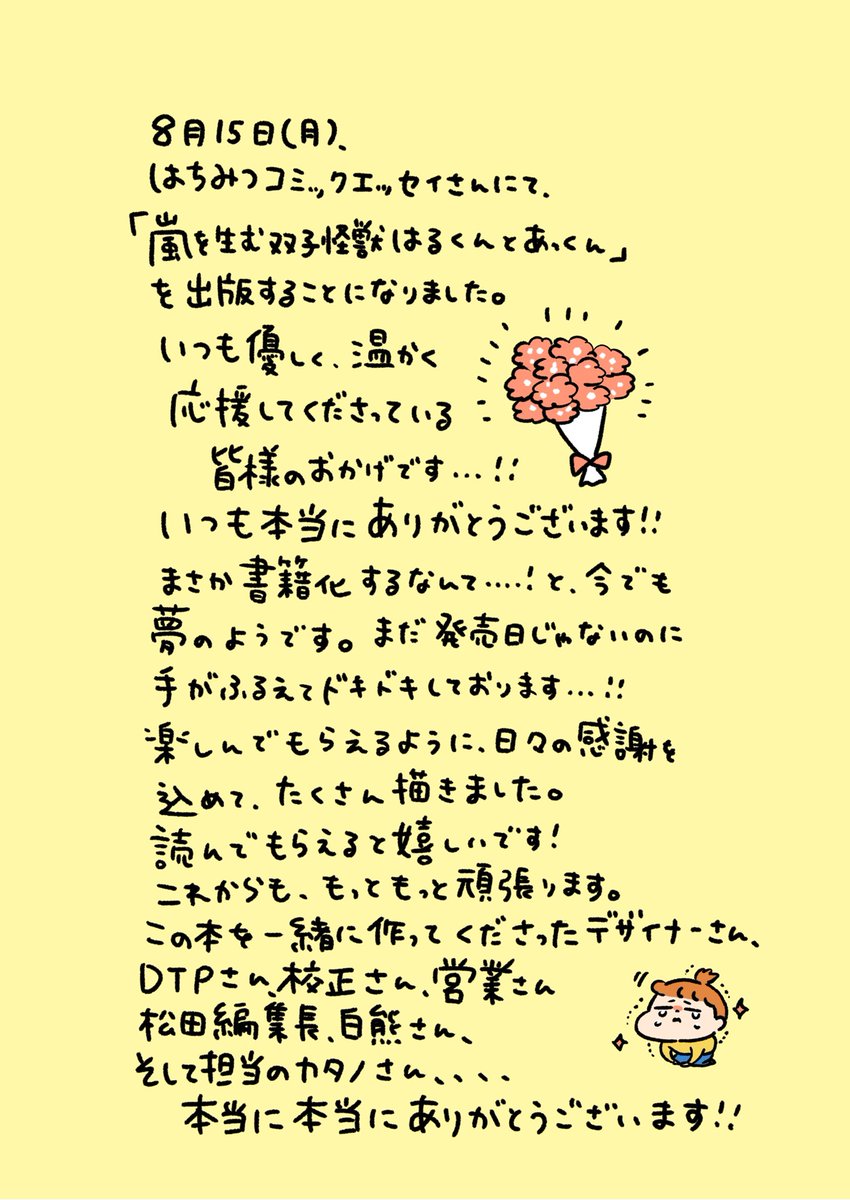 8月15日(月)、
はちみつコミックエッセイさんにて、
「嵐を生む双子怪獣はるくんとあっくん」
を出版することになりました。
いつも優しく、温かく
応援してくださっている
皆様のおかげです…!!
いつも本当にありがとうございます!!
まさか書籍化するなんて….!と、今でも
夢のようです。まだ発売日じゃないのに
手がふるえてドキドキしております…!!
楽しんでもらえるように、日々の感謝を
込めて、たくさん描きました。
読んでもらえると嬉しいです!
これからも、もっともっと頑張ります。
この本を一緒に作ってくださったデザイナーさん、
DTPさん、校正さん、営業さん
松田編集長、白熊さん、
そして担当のカタノさん、、、、
本当に本当にありがとうございます!!